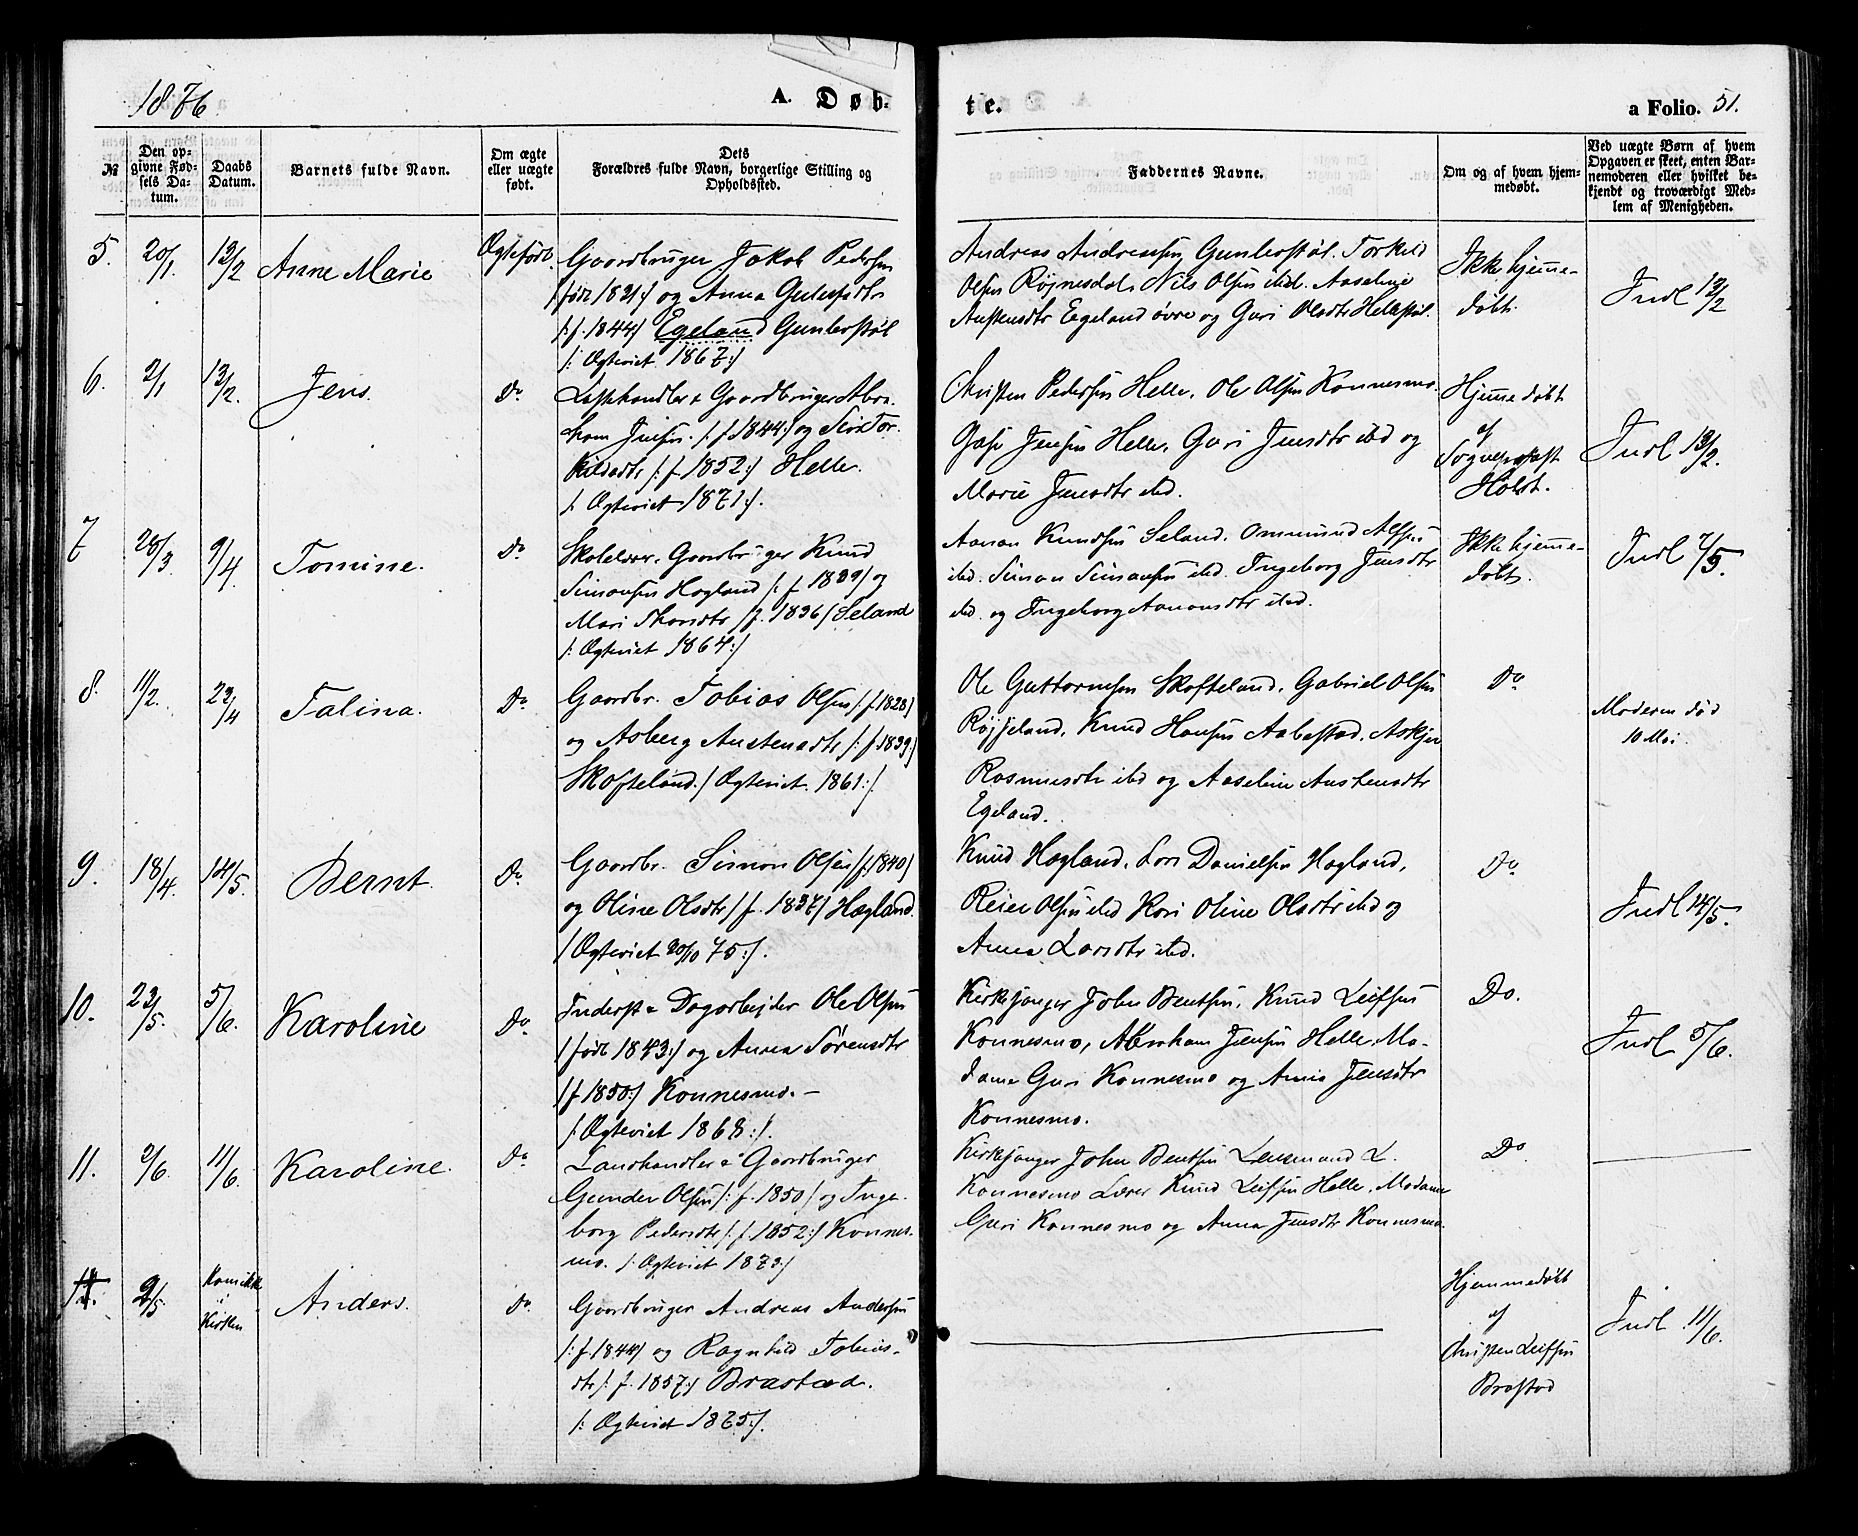 1876.
A. Døb-
te.
a Folio. 51.
№
Den op-
givne Fød-
sels Da-
tum.
Daabs
Datum.
Barnets fulde Navn.
Om ægte
eller uægte
født.
Dets
Forældres fulde Navn, borgerlige Stilling og
Opholdssted.
Faddernes Navne.
Om og af hvem hjem-
medøbt.
Ved uægte Børn af hvem
Opgaven er skeet, enten Bar-
nemoderen eller hvilket be-
kjendt og troværdigt Med-
lem af Menigheden.
5. 20/1. 13/2 Anne Marie Ægtefødt.
Gaardbruger Jakob Pedersen
/født 1821:/ og Anna
/:f. 1844/ Egeland Gunlerstøl
/: Ægteviet 1867:/
Andreas Andreassen Gunlerstøl. Torkild
Olsen Røinesdal, Nils Olsen ibid. Aaselinie
Austensdtr Egeland øvre og Guri Olsdtr Hellestøl.
Ikke hjemme-
døbt.
Indl 13/2
6. 2/1 13/2. Jens. Do
Landhandler & Gaardbruger Abra-
ham Jensen. /: f. 1844:/ og Siri Tor-
kildsdtr /: f. 1852:/ Helle.
/: Ægteviet 1871:/.
Christen Pedersen Helle, Ole Olsen Konnesmo.
Jensen Helle, Guri Jensdtr ibd og
Marie Jensdtr ibd.
Hjemmedøbt
af
Sogneprest
Holst.
Indl 13/2.
7 28/3. 9/4. Tomine. Do
Skolelærer, Gaardbruger Knud
Simonsen Hogland /: f 1839/ og
Mari Thorsdtr /f. 1836/ Seland
/: Ægteviet 1864:/
Aanon Knudsen Seland. Ommund Alfsen
ibd. Simon Simonsen ibd. Ingeborg Jensdtr
ibd. og Ingeborg Aanonsdtr ibid.
Ikke hjemme-
døbt.
Indl 7/5.
8. 11/2. 23/4 Talina. Do
Gaardbr. Tobias Olsen /:f.1828/
og Asberg Austensdtr /: f 1839:/
Skofteland. / Ægteviet. 1861:/.
Ole Guttormsen Skofteland, Gabriel Olsen
Røisseland, Knud Hansen Aabestad, Askjer
Rasmusdtr ibd og Aaseline Austensdtr
Egeland.
Do
Moderen død
10 Mai.
9. 18/4. 14/5. Bernt. Do
Gaardbr. Simon Olsen /f.1840/
og Oline Olsdtr /f. 1837/ Høgland.
/ Ægteviet 20/10 75:/.
Knud Høgland, Lars Danielsen Høgland,
Reier Olsen ibd Kari Oline Olsdtr ibd og
Anna Larsdtr ibd.
Do.
Indl 14/5.
10. 23/5. 5/6. Karoline Do
Inderst & Dagarbejder Ole Olsen
/født 1843:/ og Anna Sørensdtr
/f 1850:/ Konnesmo. –
/: Ægteviet 1868:/.
Kirkesanger John Bentsen, Knud Leifsen
Konnesmo, Abraham Jensen Helle, Ma-
dame Guri Konnesmo og Anna Jensdtr
Konnesmo.
Do.
Indl 5/6.
11. 2/6. 11/6. Karoline. Do
Landhandler & Gaardbruger
Gunder Olsen /: f. 1850/ og Inge-
borg Pedersdtr /: f 1852:/ Konnes-
mo. /: Ægteviet 1873:/
Kirkesanger John Bentsen Lensmand L.
Konnesmo Lærer Knud Leifsen Helle, Madame
Guri Konnesmo og Anna Jensdtr Konnesmo.
Do
2/5. Kom ikke
i
Kirken
Anders. Do
Gaardbruger Andreas Andersen
/: f. 1844/ og Ragnhild Tobias-
dtr /: f. 1857:/ Brastad.
/: Ægteviet 1875:/.
Hjemmedøbt
af
Christen Leifsen
Brastad
Indl 11/6.